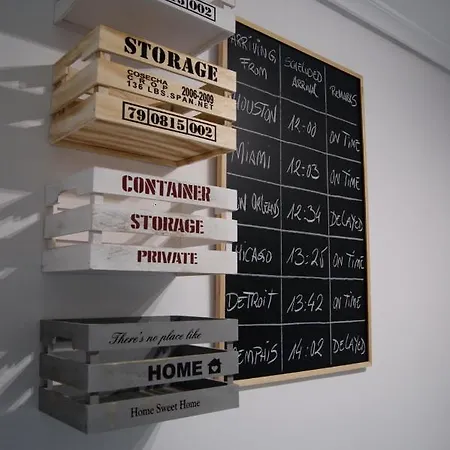 79 0815 002
STORAGE
COSECHA
CROP 2006-2009
136 LBS.SPAN.NET
79 0815 002
CONTAINER
STORAGE
PRIVATE
There's no place like
HOME
Home Sweet Home
ARRIVING FROM
SCHEDULED ARRIVAL
REMARKS
HOUSTON 12:00 ON TIME
MIAMI 12:03 ON TIME
ORLEANS 12:34 DELAYED
CHICAGO 13:25 ON TIME
DETROIT 13:42 ON TIME
MEMPHIS 14:02 DELAYED